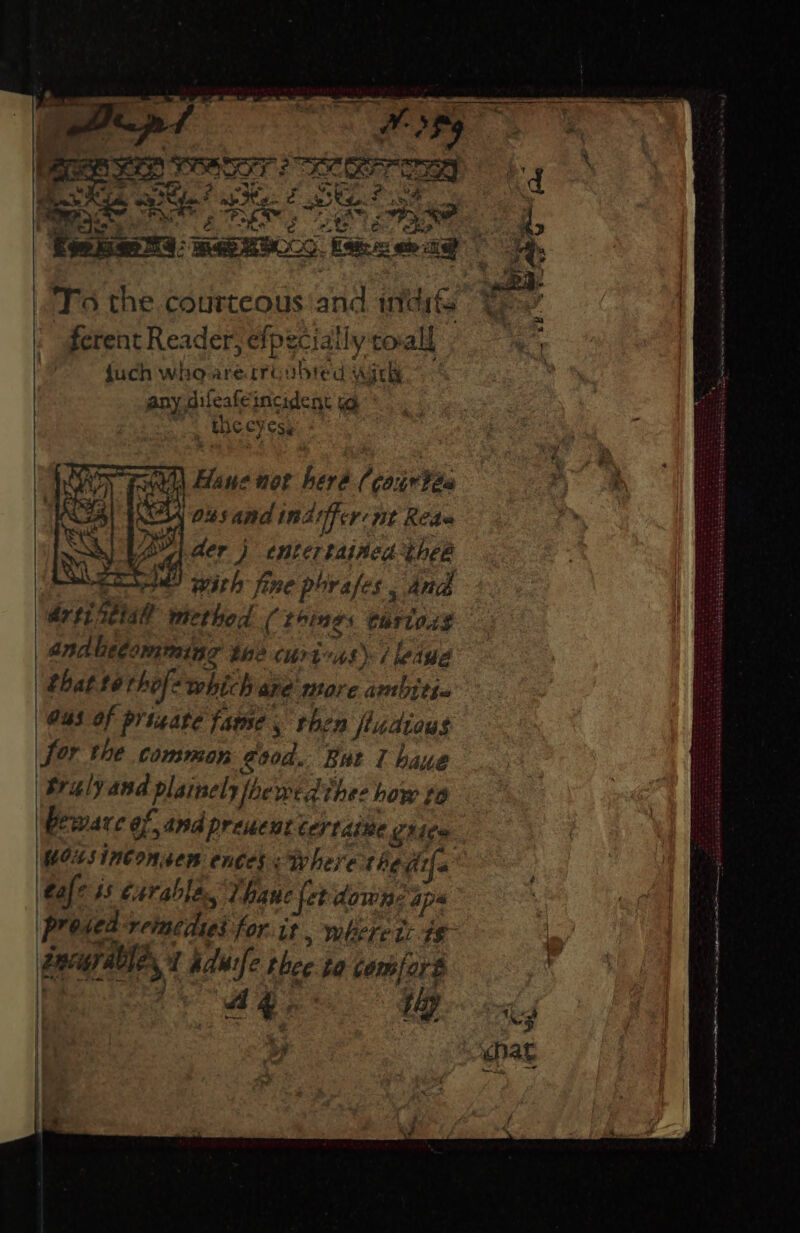 To the courteous and indif-
ferent Reader, eſpecially to all
ſuch who are troubled with
any diſeaſe incident to
the eyes.
I Haue not here (courte-
ous and indifferent Rea-
der) entertained thee
with fine phraſes, and
artificiall method (things curious
and becomming the curious) I leaue
that to thoſe which are more ambiti-
ous of priuate fame, then ſtudious
for the common good. But I haue
truly and plainely ſhewed thee how to
beware of, and preuent certaine grieu-
ous inconuen ences: where the diſ-
eaſe is curable, I haue ſet downe ap-
proued remedies for it, where it is
incurable, I aduiſe thee to comfort
A 4 thy
d
chat